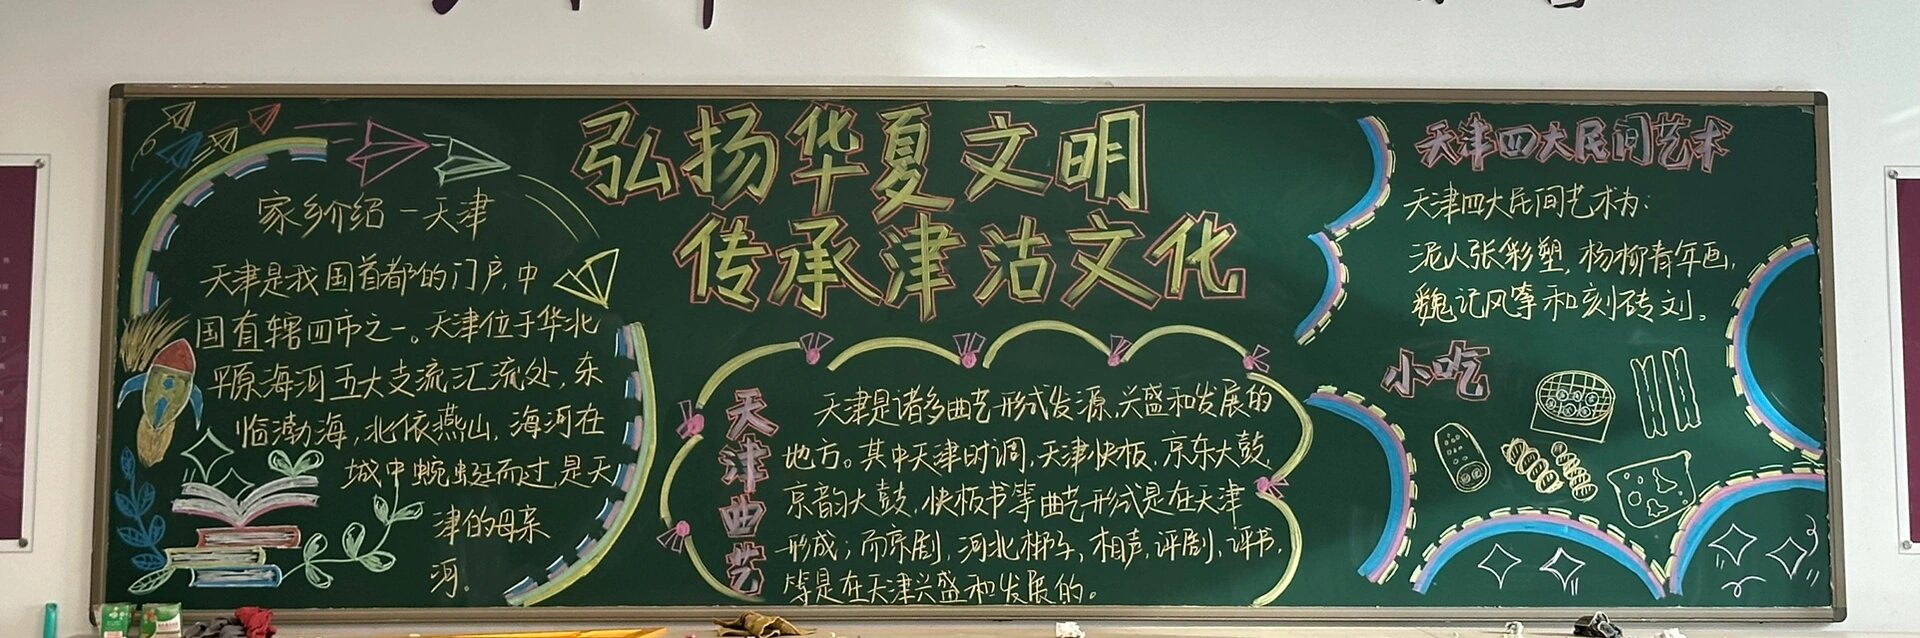 弘扬华夏文明
传承津沽文化
家乡介绍－天津
天津是我国首都的门户,中
国直辖四市之一。天津位于华北
平原海河五大支流汇流处,东
临渤海,北依燕山,海河在
城中蜿蜒而过,是天
津的母亲
河。
天津曲艺
天津是诸多曲艺形式发源,兴盛和发展的
地方。其中天津时调,天津快板,京东大鼓,
京韵大鼓,快板书等曲艺形式是在天津
形成;而京剧,河北梆子,相声,评剧,评书,
等是在天津兴盛和发展的。
天津四大民间艺术
天津四大民间艺术为:
泥人张彩塑,杨柳青年画,
魏记风筝和刻砖刘。
小吃